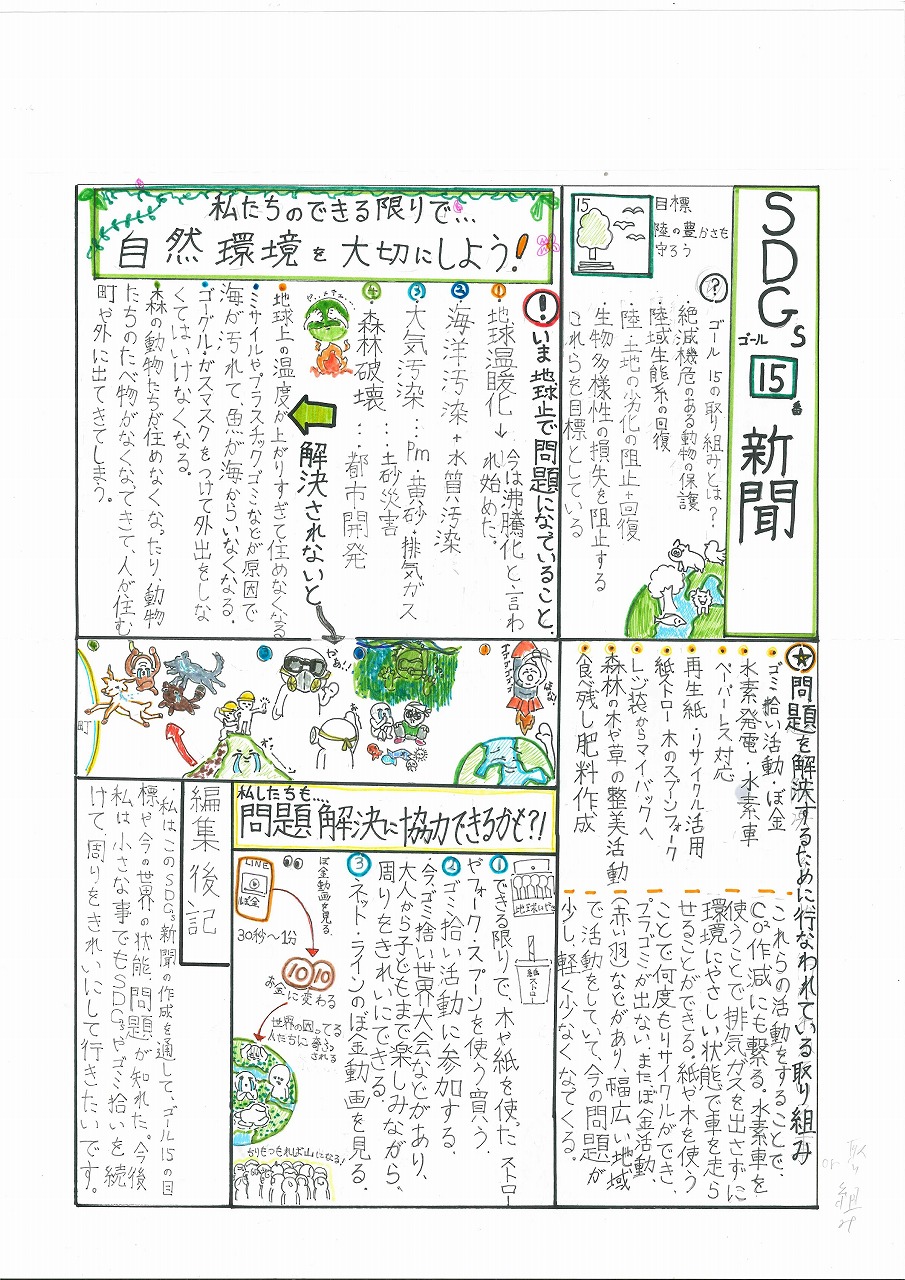 SDGs
ゴール
15
番
新聞
15
目標
陸の豊かさも
守ろう
?
ゴール15の取り組みとは?
・絶滅機危のある動物の保護
陸域生態系の回復
・陸・土地の劣化の阻止+回復
・生物多様性の損失を阻止する
これらを目標としている
私たちのできる限りで…
自然環境を大切にしよう!
!いま地球上で問題になっていること、
①地球温暖化→今は沸騰化と言わ
れ始めた。
②海洋汚染+水質汚染
③大気汚染…Pm・黄砂・排気ガス
…土砂災害
④森林破壊…都市開発
解決されないと
地球上の温度が上がりすぎて住めなくなる
ミサイルやプラスチックゴミなどが原因で
海が汚れて、魚が海からいなくなる。
ゴーグル・ガスマスクをつけて外出をしな
くてはいけなくなる。
森の動物たちが住めなくなったり、動物
たちのたべ物がなくなってきて、人が住む
町や外に出てきてしまう。
町
★問題を解決するために行なわれている取り組み
ゴミ拾い活動・ぼ金
水素発電・水素車
ペーパーレス対応
再生紙・リサイクル活用
紙ストロー・木のスプンフォーク
レジ袋からマイバックへ
森林の木や草の整美活動
食べ残し肥料作成
これらの活動をすることで、
CO²作減にも繋る。水素車を
使うことで、排気ガスを出さずに
環境にやさしい状態で車を走ら
せることができる。紙や木を使う
ことで何度もリサイクルができ、
プラゴミが出ない。また、ぼ金活動、
(赤い羽)などがあり、幅広い地域
で活動をしていて、今の問題が
少しし軽く少なくなってくる。
私したちも…
問題解決に協力できるかも?!
①できる限りで、木や紙を使ったストロー
やフォーク・スプンを使う買う。
②ゴミ拾い活動に参加する。
今、ゴミ捨い世界大会などがあり、
大人から子どもまで楽しみながら、
周りをきれいにできる。
③ネット・ラインのぼ金動画を見る。
ぼ金動画を見る。
LINE
ぼ金
30秒〜1分
10
10
お金に変わる
世界の困ってる
人たちに寄ふ
される
ちりもつもれば山になる!
編集後記
私はこのSDGs新聞の作成を通して、ゴール15の目
標や今の世界の状態、問題が知れた。今後
私は小さな事でもSDGsやゴミ拾いを続
けて、周りをきれいにして行きたいです。
取り組み
or